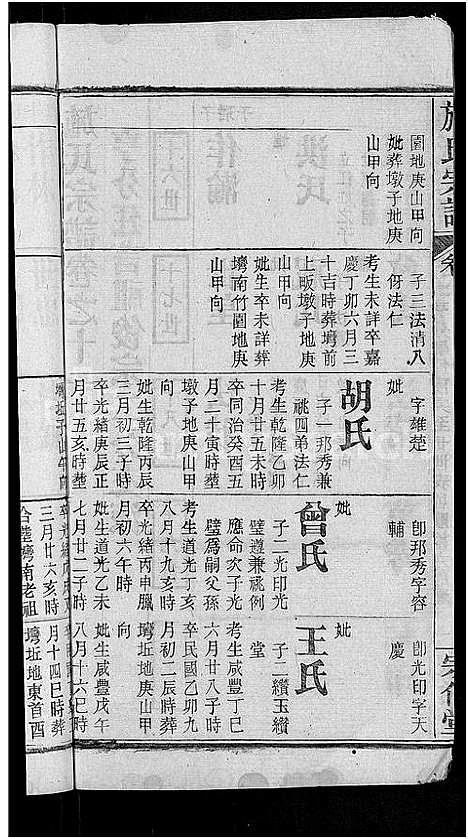 施氏宗譜
卷
宗作堂
園地庚山甲向
妣葬墩子地庚
山甲向
子三法清八
伢法仁
考生未詳卒嘉
慶丁卯六月三
十吉時葬塆前
上畈墩子地庚
山甲向
妣生卒未詳葬
塆南竹園地庚
山甲向
字雄楚
妣
胡氏
子一邦秀兼
祧四弟法仁
考生乾隆乙卯
十月廿五未時
卒同治癸酉五
月二十寅時塟
墩子地庚山甲
向
妣生乾隆丙辰
三月初三子時
卒光緒庚辰正
月廿五亥時塟
即邦秀字容
輔
妣
曾氏
子二光印光
璧遵兼祧例
應命次子光
璧為嗣父孫
考生道光丁亥
八月十九亥時
卒光緒丙申臘
月初六午時
妣生道光乙未
七月廿二子時
三月廿六亥時
合塟塆南老祖
即光印字天
慶
妣
王氏
子二纘玉纘
堂
考生咸豐丁巳
六月廿八子時
卒民國乙卯九
月初二辰時葬
塆坵地庚山甲
向
妣生咸豐戊午
八月十六巳時
月十四巳時葬
塆坵地東首酉